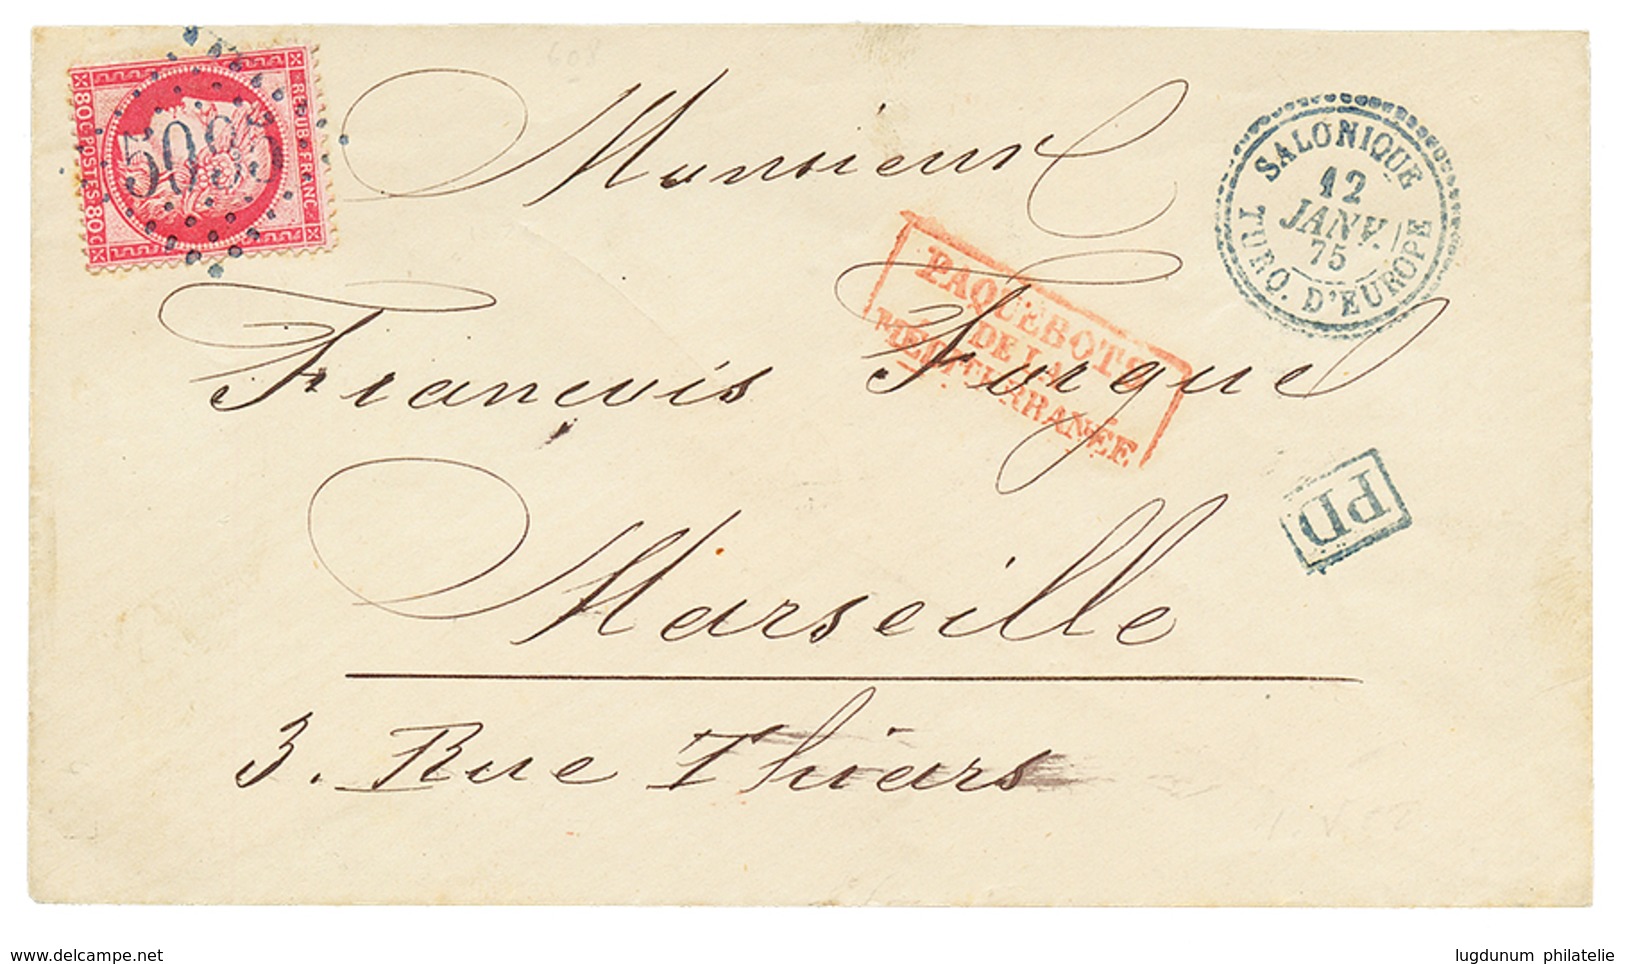 608
REPUB. FRANC.
80 C. POSTES 80 C.
5095
Monsieur
SALONIQUE
12
JANV.
75
TURQ. D'EUROPE
PAQUEBOTS
DE LA
MÉDITERRANÉE
François Forque
PD
Marseille
3. Rue Thiars
www.delcampe.net
lugdunum philatelie